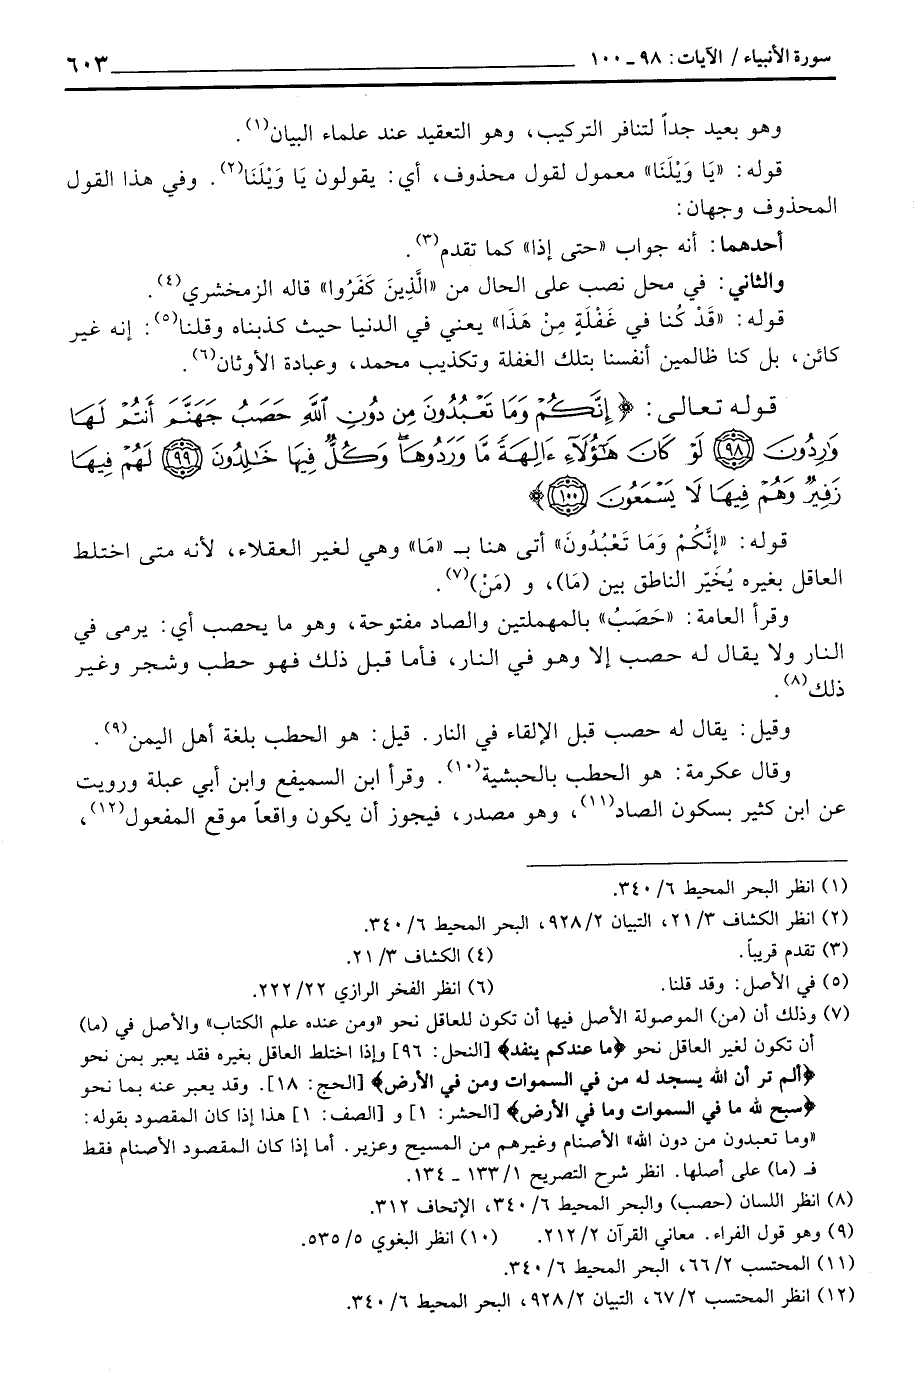 سورة الأنبياء / الآيات: ٩٨ ـ ١٠٠ ٦٠٣
وهو بعيد جداً لتنافر التركيب، وهو التعقيد عند علماء البيان(١).
قوله: «يَا وَيْلَنَا» معمول لقول محذوف، أي: يقولون يَا وَيْلَنَا(٢). وفي هذا القول
المحذوف وجهان:
أحدهما: أنه جواب «حتى إذا» كما تقدم(٣).
والثاني: في محل نصب على الحال من «الَّذِينَ كَفَرُوا» قاله الزمخشري(٤).
قوله: «قَدْ كُنا في غَفْلَةٍ مِنْ هَذَا» يعني في الدنيا حيث كذبناه وقلنا(٥): إنه غير
كائن، بل كنا ظالمين أنفسنا بتلك الغفلة وتكذيب محمد، وعبادة الأوثان(٦).
قوله تعالى: ﴿ إِنَّكُمْ وَمَا تَعْبُدُونَ مِن دُونِ اللَّهِ حَصَبُ جَهَنَّمَ أَنتُمْ لَهَا
وَارِدُونَ (٩٨) لَوْ كَانَ هَٰٓؤُلَآءِ ءَالِهَةً مَّا وَرَدُوهَاۖ وَكُلٌّ فِيهَا خَٰلِدُونَ (٩٩) لَهُمْ فِيهَا
زَفِيرٌ وَهُمْ فِيهَا لَا يَسْمَعُونَ (١٠٠) ﴾
قوله: «إِنَّكُمْ وَمَا تَعْبُدُونَ» أتى هنا بـ «مَا» وهي لغير العقلاء، لأنه متى اختلط
العاقل بغيره يُخَيّر الناطق بين (مَا)، و (مَنْ)(٧).
وقرأ العامة: «حَصَبُ» بالمهملتين والصاد مفتوحة، وهو ما يحصب أي: يرمى في
النار ولا يقال له حصب إلا وهو في النار، فأما قبل ذلك فهو حطب وشجر وغير
ذلك(٨).
وقيل: يقال له حصب قبل الإلقاء في النار. قيل: هو الحطب بلغة أهل اليمن(٩).
وقال عكرمة: هو الحطب بالحبشية(١٠). وقرأ ابن السميفع وابن أبي عبلة ورويت
عن ابن كثير بسكون الصاد(١١)، وهو مصدر، فيجوز أن يكون واقعاً موقع المفعول(١٢)،
(١) انظر البحر المحيط ٦/ ٣٤٠.
(٢) انظر الكشاف ٣/ ٢١، التبيان ٢/ ٩٢٨، البحر المحيط ٦/ ٣٤٠.
(٣) تقدم قريباً. (٤) الكشاف ٣/ ٢١.
(٥) في الأصل: وقد قلنا. (٦) انظر الفخر الرازي ٢٢/ ٢٢٢.
(٧) وذلك أن (من) الموصولة الأصل فيها أن تكون للعاقل نحو «ومن عنده علم الكتاب» والأصل في (ما)
أن تكون لغير العاقل نحو ﴿ما عندكم ينفد﴾ [النحل: ٩٦] وإذا اختلط العاقل بغيره فقد يعبر بمن نحو
﴿ألم تر أن الله يسجد له من في السموات ومن في الأرض﴾ [الحج: ١٨]. وقد يعبر عنه بما نحو
﴿سبح لله ما في السموات وما في الأرض﴾ [الحشر: ١] و [الصف: ١] هذا إذا كان المقصود بقوله:
«وما تعبدون من دون الله» الأصنام وغيرهم من المسيح وعزير. أما إذا كان المقصود الأصنام فقط
فـ (ما) على أصلها. انظر شرح التصريح ١/ ١٣٣ ـ ١٣٤.
(٨) انظر اللسان (حصب) والبحر المحيط ٦/ ٣٤٠، الإتحاف ٣١٢.
(٩) وهو قول الفراء. معاني القرآن ٢/ ٢١٢. (١٠) انظر البغوي ٥/ ٥٣٥.
(١١) المحتسب ٢/ ٦٦، البحر المحيط ٦/ ٣٤٠.
(١٢) انظر المحتسب ٢/ ٦٧، التبيان ٢/ ٩٢٨، البحر المحيط ٦/ ٣٤٠.